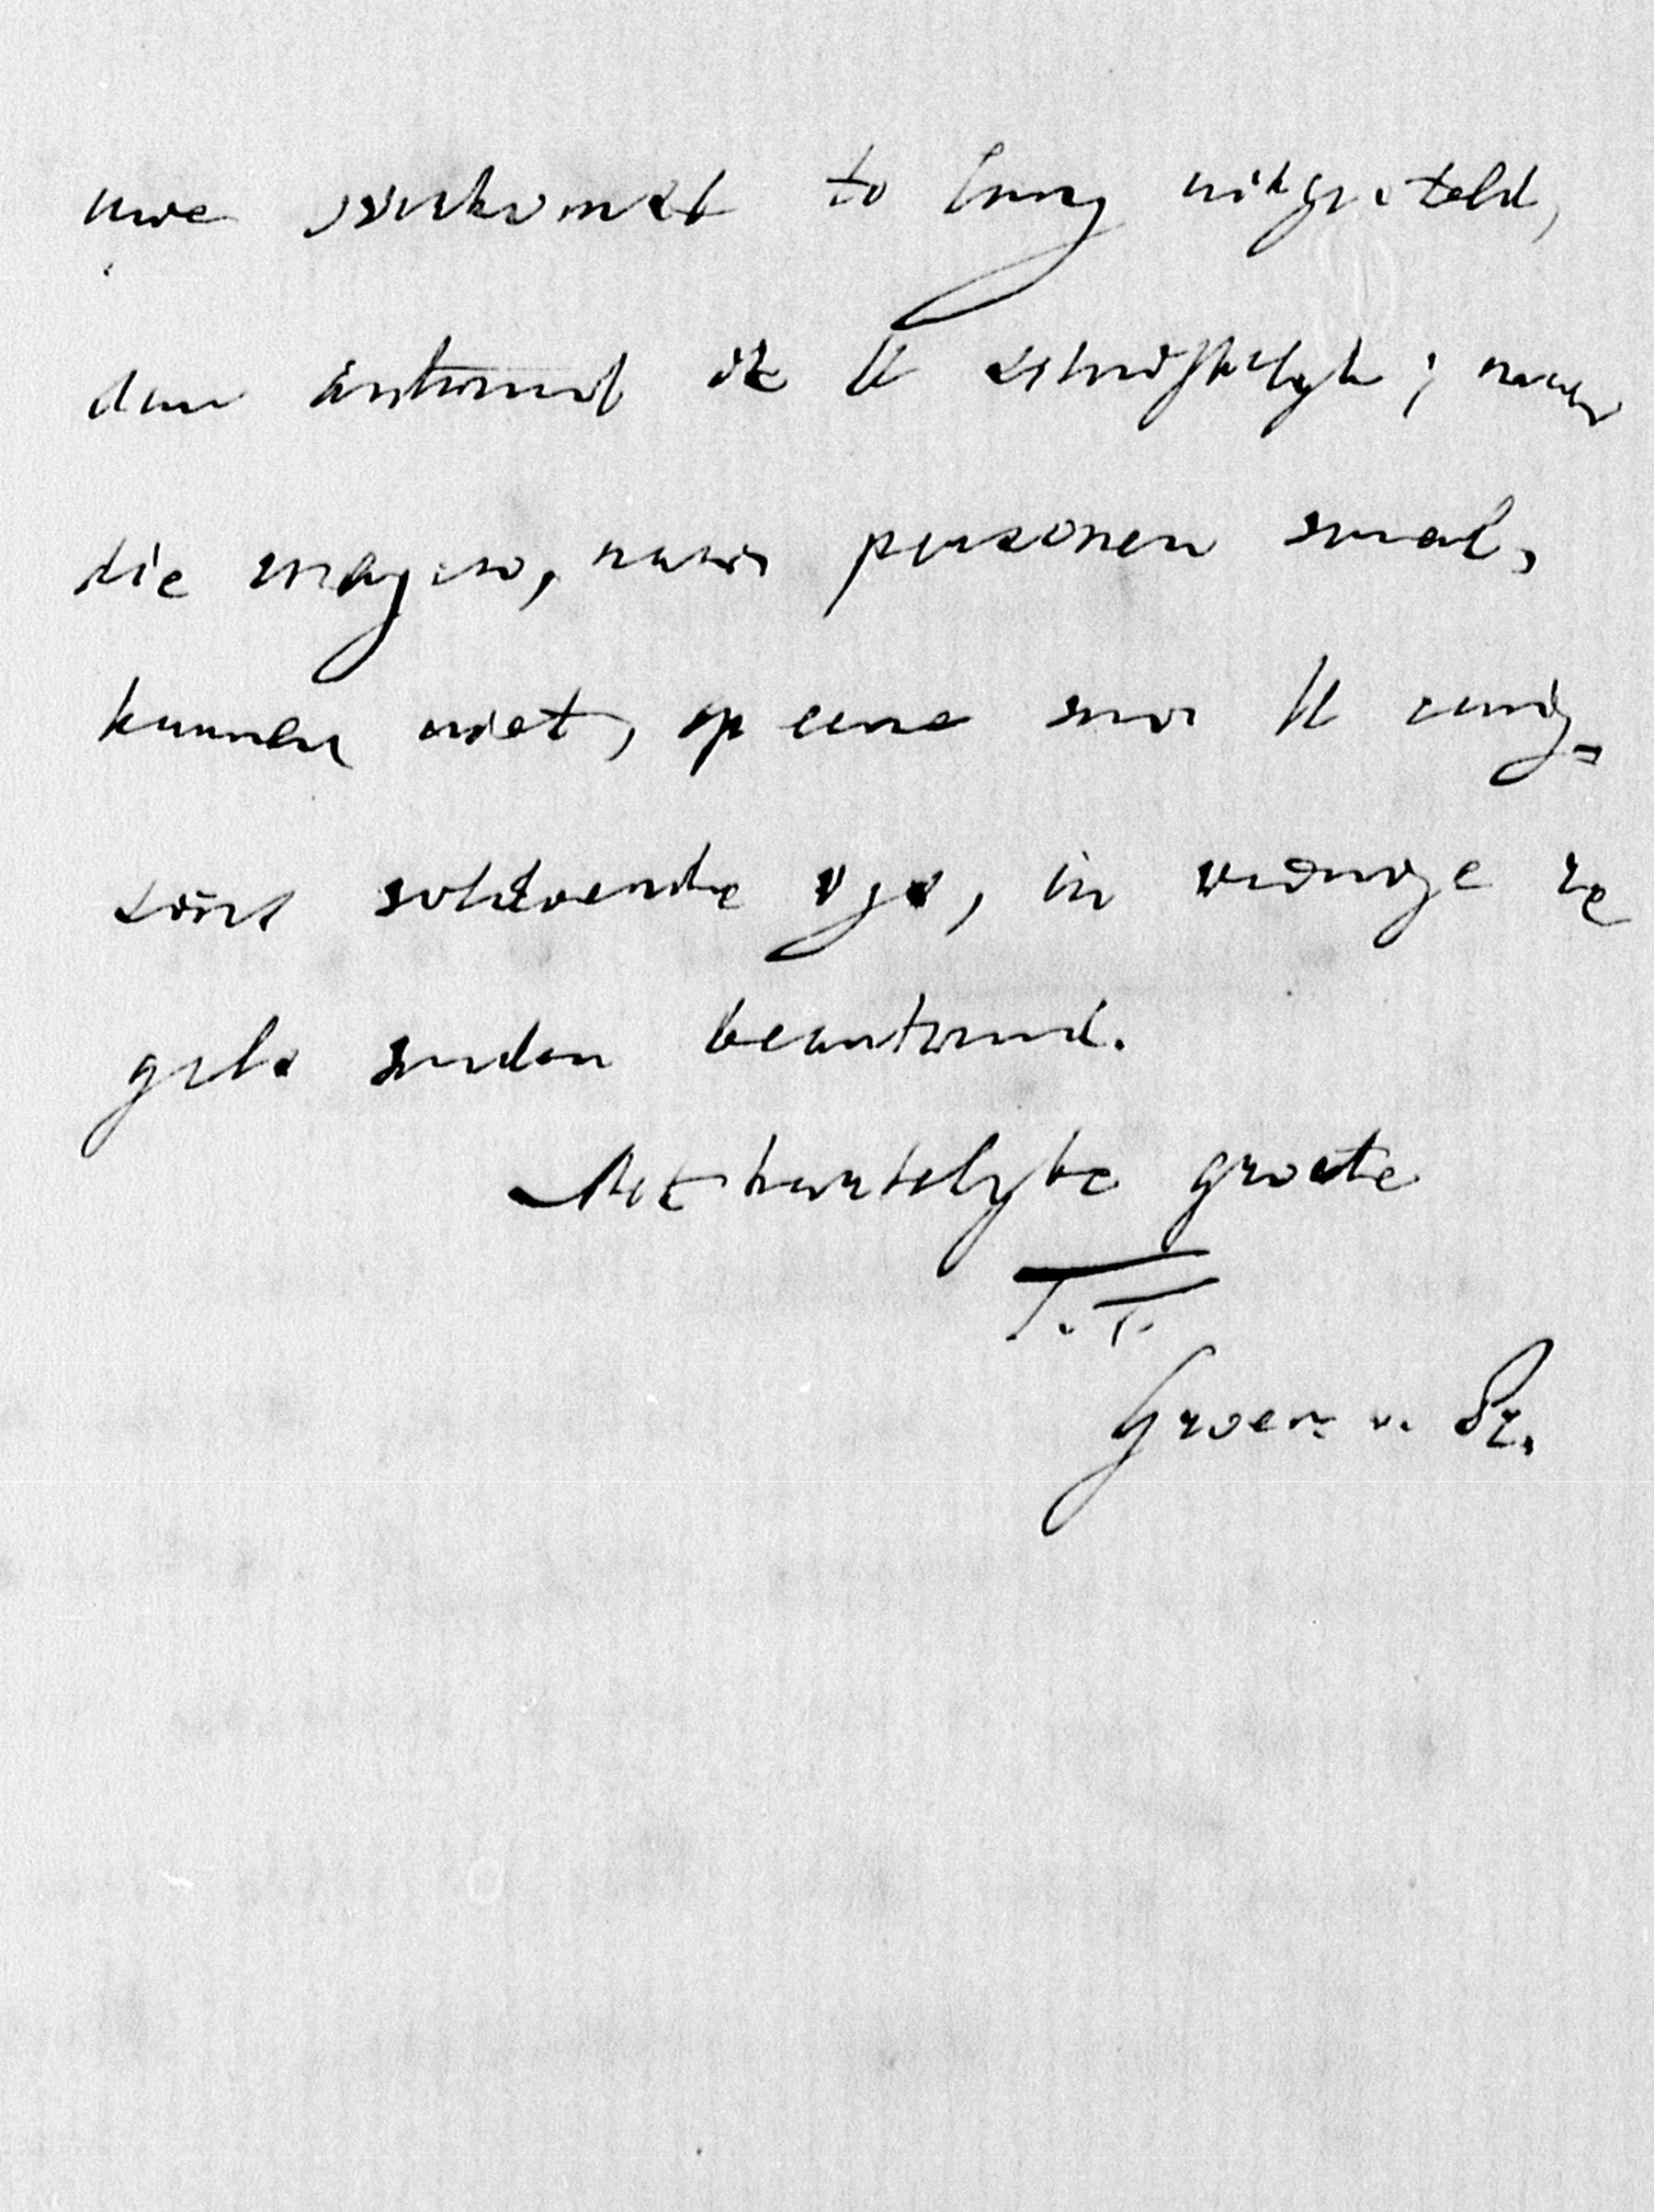 uwe overkomst te lang uitgesteld,
dan antwoord ik U schriftelyk; maar
die vragen, naar personen vooral,
kunnen niet, op eene voor U eenig-
zins voldoende wyze, in weinige re
gels worden beantwoord.
Met hartelyke groete
T.T.
Groen v. Pr.